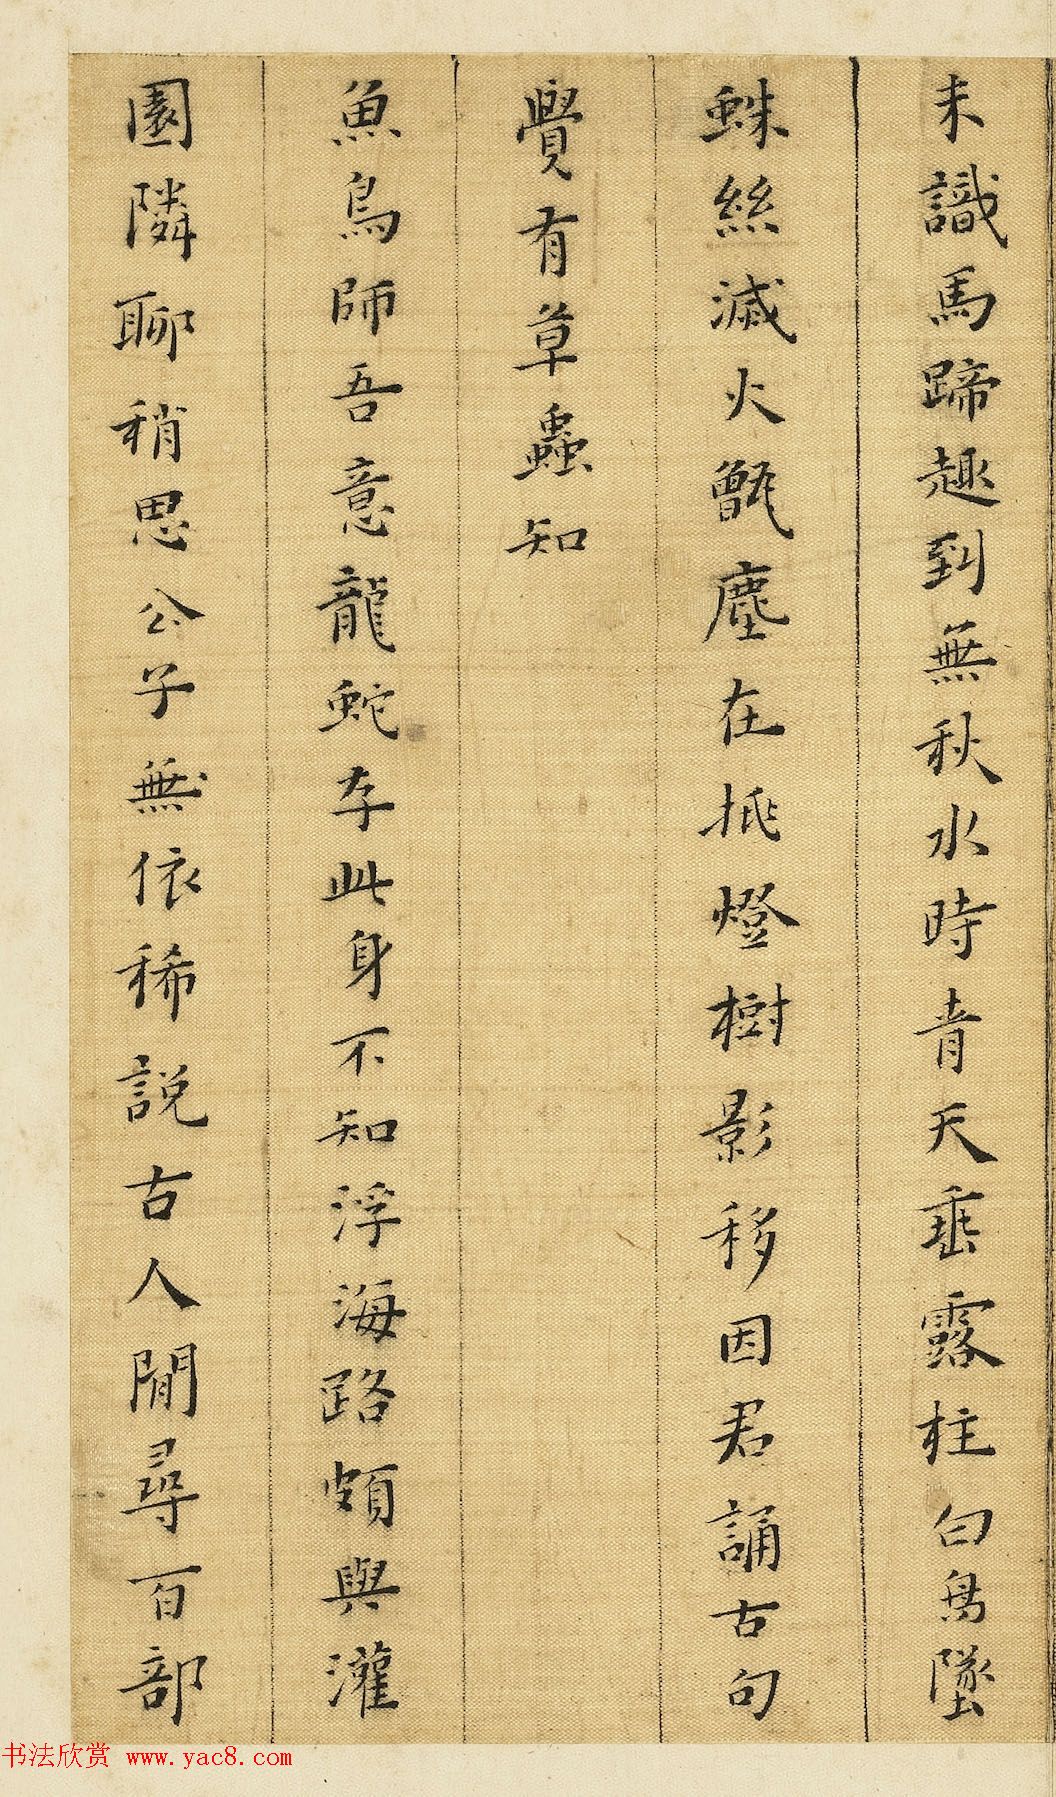 未識馬蹄趣到無秋水時青天垂露柱白鳥墜
蛛絲滅火甑塵在挑燈樹影移因君誦古句
覺有草蟲知
魚鳥師吾意龍蛇存此身不知浮海路頗與灌
園隣聊稍思公子無依稀説古人閒尋百部
书法欣赏 www.yac8.com